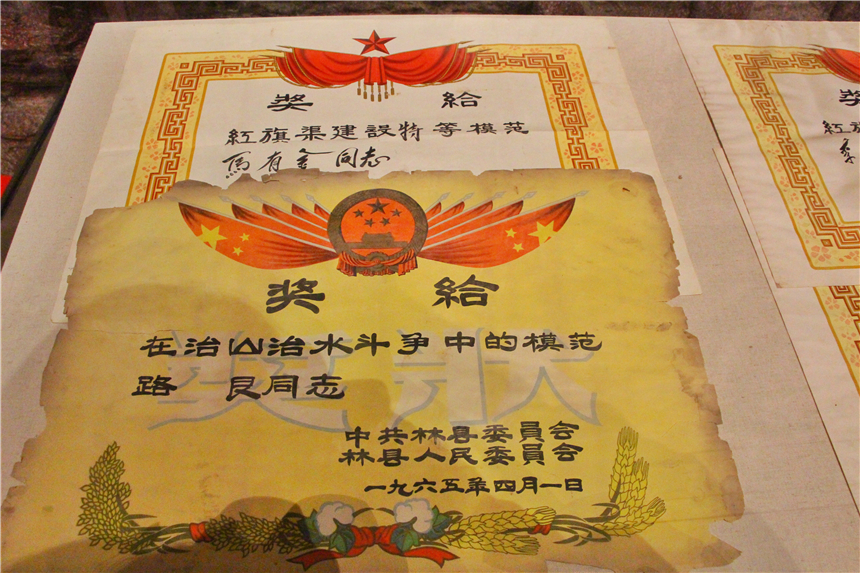 奖 给
紅旗渠建設特等模范
馬有金同志
奖 给
在治山治水斗争中的模范
路 良同志
奖状
中共林县委員会
林县人民委員会
一九六五年四月一日
奖
紅旗